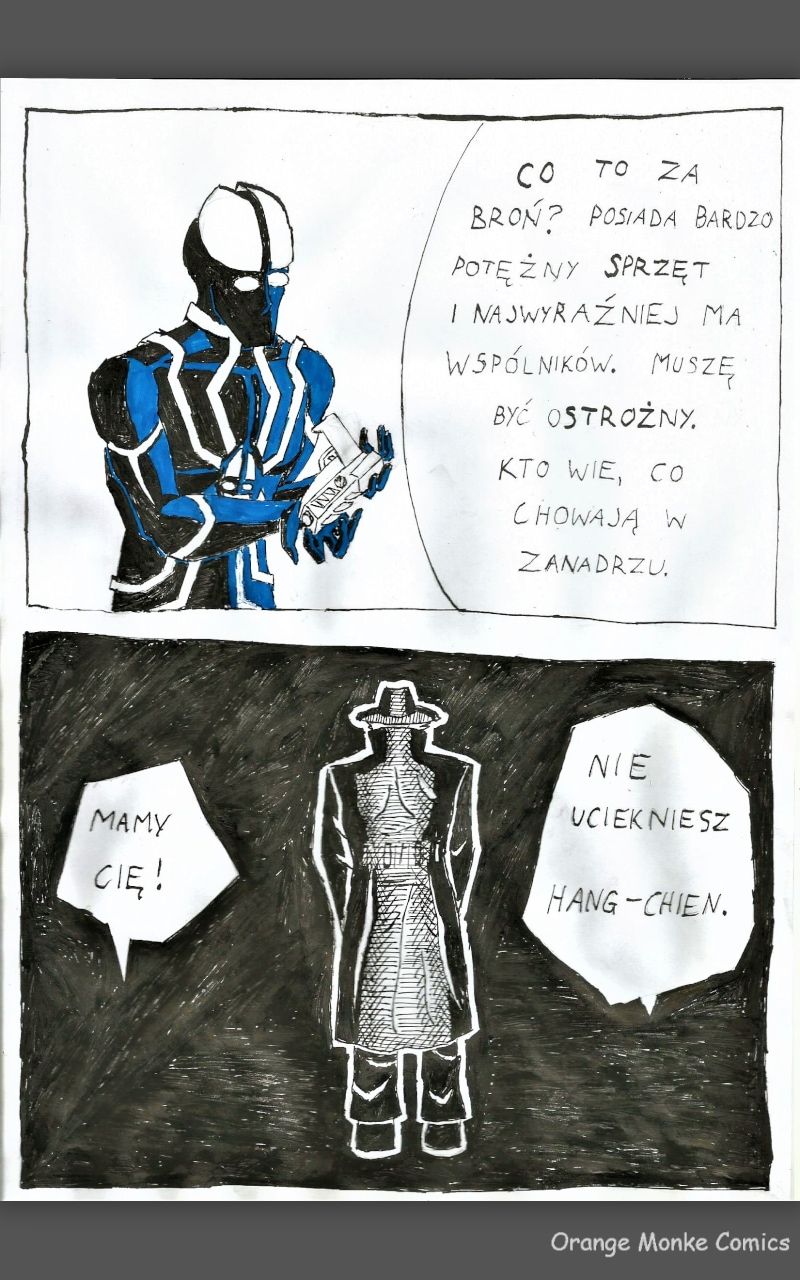 CO TO ZA
BROŃ? POSIADA BARDZO
POTĘŻNY SPRZĘT
I NAJWYRAŹNIEJ MA
WSPÓLNIKÓW. MUSZĘ
BYĆ OSTROŻNY.
KTO WIE, CO
CHOWAJĄ W
ZANADRZU.
MAMY
CIĘ!
NIE
UCIEKNIESZ
HANG-CHIEN.
Orange Monke Comics